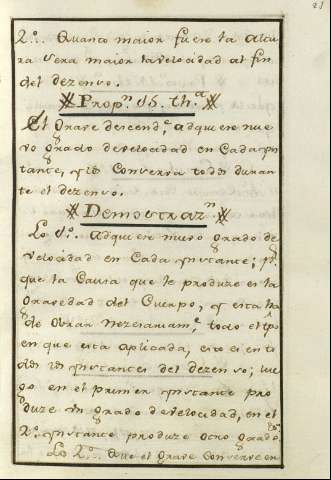 21
2º. Quanto maior fuere la altu
ra sera maior la velocidad al fin
del dezenso.
Propn. 15. tha.
El grave descende. adquiere nue
vo grado de velocidad en Cada ins
tante, y los Converva todos duran
te el dezenso.
Demostrazn.
Lo 1º. adquiere nuevo grado de
velocidad en Cada instante; pr.
que la Causa que le produze es la
Gravedad del Cuerpo, y esta ha
de obrar Nezesariame. todo el tpo
en que esta aplicada, esto es en to
dos los instantes del dezenso; lue
go en el primer instante pro
duze un grado de velocidad, en el
2º. instante produze otro grado
Lo 2º. Que el grave Converve en